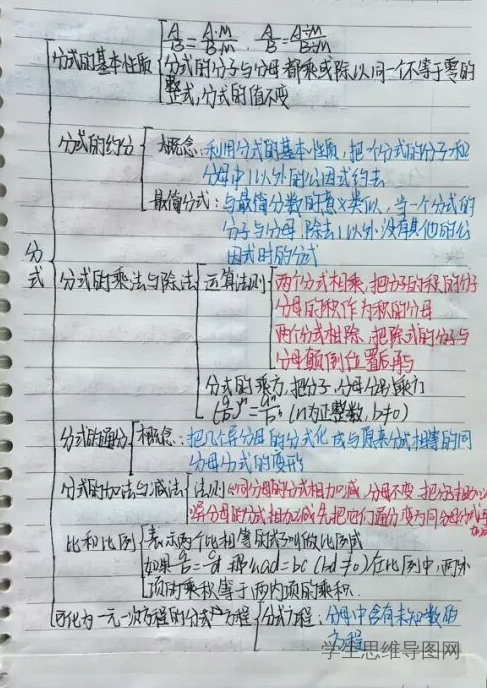 分式
分式的基本性质
A/B = A·M/B·M , A/B = A÷M/B÷M
分式的分子与分母都乘或除以同一个不等于零的
整式,分式的值不变
分式的约分
概念:利用分式的基本性质,把一个分式的分子和
分母中1以外的公因式约去
最简分式:与最简分数的意义类似,当一个分式的
分子与分母,除去1以外没有其他的公
因式时的分式
分式的乘法与除法
运算法则
两个分式相乘,把分子的积作
分母的积作为积的分母
两个分式相除,把除式的分子与
分母颠倒位置后再与
分式的乘方,把分子,分母分别乘方
(a/b)ⁿ = aⁿ/bⁿ, (n为正整数,b≠0)
分式的通分
概念:把几个异分母的分式化成与原来分式相等的同
分母分式的变形
分式的加法与减法
法则 同分母的分式相加减,分母不变,把分子相加
异分母的分式相加减先把它们通分变为同分母分式
比和比例
表示两个比相等的式子叫做比例式
如果a/b=c/d 那么ad=bc (bd≠0)在比例中,两外
项的乘积等于两内项的乘积.
可化为一元一次方程的分式方程
分式方程:分母中含有未知数的
方程
学生思维导图网